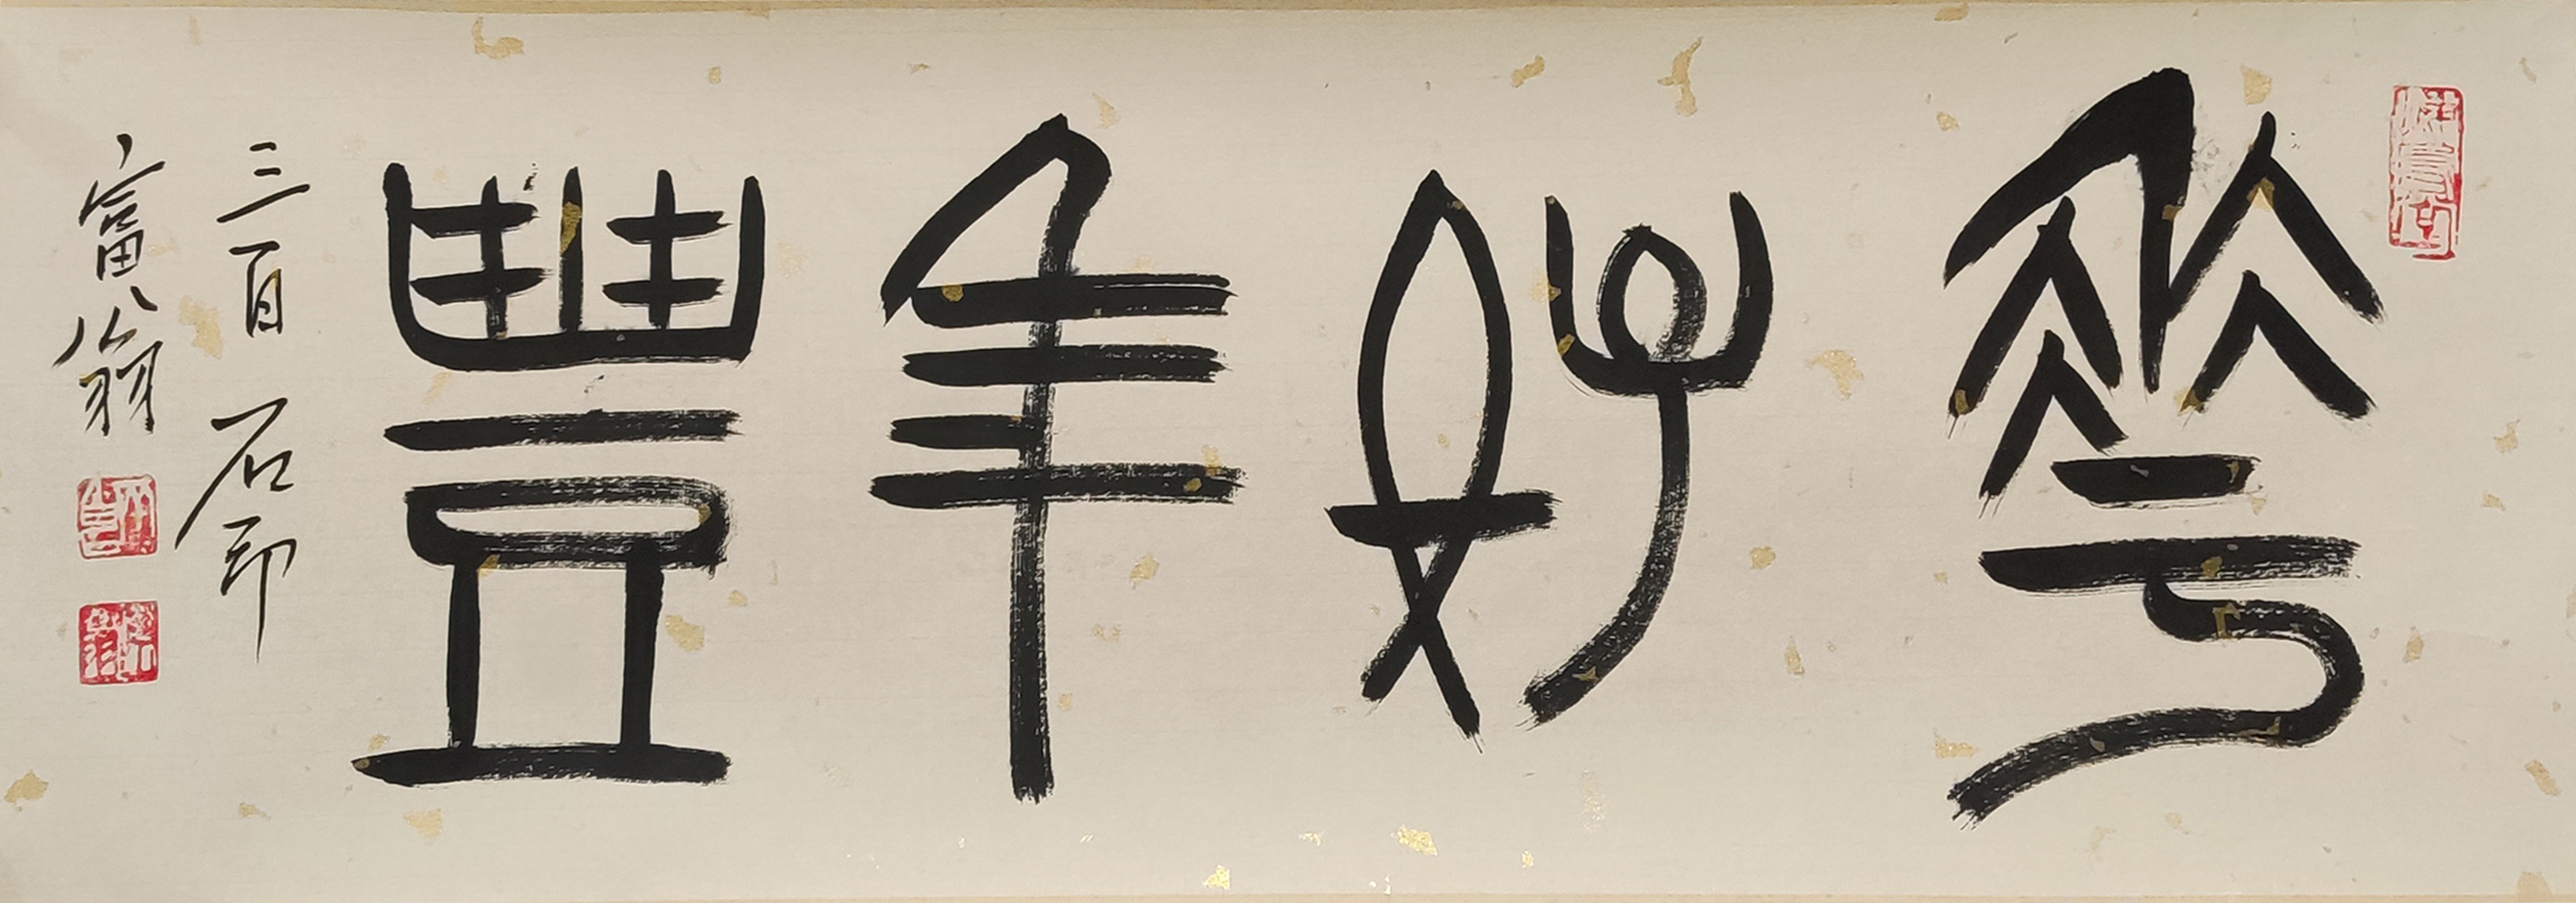 花好年豐
三百石印
富翁